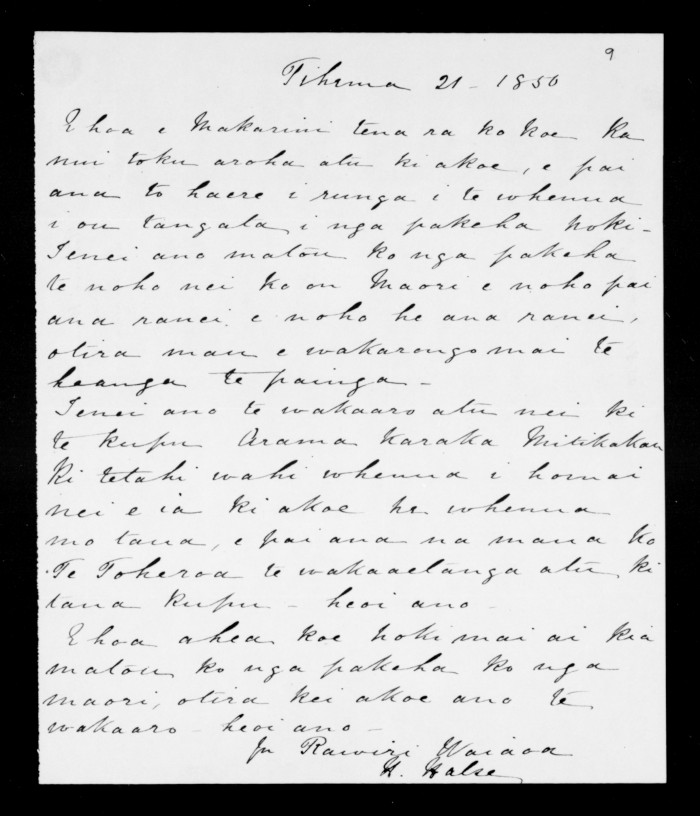 9
Tihema 21 - 1850
E hoa e Makarini tena ra ko koe Ka
nui toku aroha atu ki akoe, e pai
ana to haere i runga i te whenua
i ou tangata, i nga pakeha hoki -
Tenei ano matou ko nga pakeha
te noho nei ko ou Maori e noho pai
ana ranei, e noho he ana ranei,
otira mau e wakarongo mai te
heanga te painga -
Tenei ano te wakaaro atu nei ki
te kupu Arama Karaka Mitikakau
ki tetahi wahi whenua i homai
nei e ia ki akoe he whenua
mo taua, e pai ana na mana ko
Te Toheroa te wakaaetanga atu ki
tana kupu - heoi ano -
E hoa ahea koe hoki mai ai kia
matou ko nga pakeha ko nga
maori, otira kei akoe ano te
wakaaro - heoi ano -
Rawiri Waiaoa
H. Halse